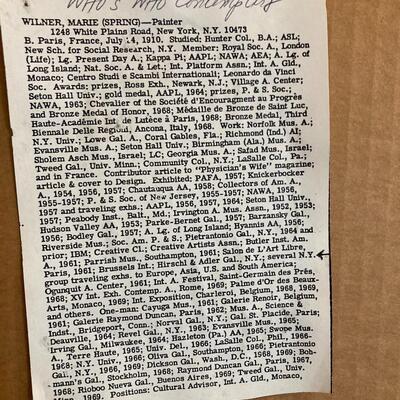 WHO'S WHO Contemporary
WILNER, MARIE (SPRING)—Painter
1248 White Plains Road, New York, N.Y. 10473
B. Paris, France, July 14, 1910. Studied: Hunter Col., B.A.; ASL;
New Sch. for Social Research, N.Y. Member: Royal Soc. A., London
(Life); Lg. Present Day A.; Kappa Pi; AAPL; NAWA; AEA; A. Lg. of
Long Island; Nat. Soc. A. & Let.; Int. Platform Assn.; Int. A. Gld.,
Monaco; Centro Studi e Scambi Internationali; Leonardo da Vinci
Soc. Awards: prizes, Ross Exh., Newark, N.J.; Village A. Center;
Seton Hall Univ.; gold medal, AAPL, 1964; prizes, P. & S. Soc.;
NAWA, 1963; Chevalier of the Société d'Encouragment au Progrès
and Bronze Medal of Honor, 1968; Médaille de Bronze de Saint Luc,
Haute-Académie Int. de Lutèce à Paris, 1968; Bronze Medal, Third
Biennale Delle Regioni, Ancona, Italy, 1968. Work: Norfolk Mus. A.;
N.Y. Univ.; Lowe Gal. A., Coral Gables, Fla.; Richmond (Ind.) AI;
Evansville Mus. A.; Seton Hall Univ.; Birmingham (Ala.) Mus. A.;
Sholem Asch Mus., Israel; LC; Georgia Mus. A.; Safad Mus., Israel;
Tweed Gal., Univ. Minn.; Community Col., N.Y.; LaSalle Col., Pa.;
and in France. Contributor article to "Physician's Wife" magazine;
article & cover to Design. Exhibited: PAFA, 1957; Knickerbocker
A., 1954, 1956, 1957; Chautauqua AA, 1958; Collectors of Am. A.,
1955-1957; P. & S. Soc. of New Jersey, 1955-1957; NAWA, 1956,
1957 and traveling exhs.; AAPL, 1956, 1957, 1964; Seton Hall Univ.,
1957; Peabody Inst., Balt., Md.; Irvington A. Mus. Assn., 1952, 1953;
Hudson Valley AA, 1953; Parke-Bernet Gal., 1957; Barzansky Gal.,
1956; Bodley Gal., 1957; A. Lg. of Long Island; Hyannis AA, 1956;
Riverside Mus.; Soc. Am. P. & S.; Pietrantonio Gal., N.Y., 1964 and
prior; IBM; Creative Cl.; Creative Artists Assn.; Butler Inst. Am.
A., 1961; Parrish Mus., Southampton, 1961; Salon de L'Art Libre,
Paris, 1961; Brussels Int.; Hirschl & Adler Gal., N.Y.; several N.Y.
group traveling exhs. to Europe, Asia, U.S. and South America;
Ogunquit A. Center, 1961; Int. A. Festival, Saint-Germain des Prés,
1968; XV Int. Exh. Contemp. A., Rome, 1969; Palme d'Or des Beaux-
Arts, Monaco, 1969; Int. Exposition, Charleroi, Belgium, 1968, 1969,
and others. One-man: Cayuga Mus., 1961; Galerie Renoir, Belgium,
1961; Galerie Raymond Duncan, Paris, 1962; Mus. A., Science &
Indst., Bridgeport, Conn.; Norval Gal., N.Y.; Gal. St. Placide, Paris;
Deauville, 1964; Revel Gal., N.Y., 1963; Evansville Mus., 1965;
Irving Gal., Milwaukee, 1964; Hazleton (Pa.) AA, 1965; Swope Mus.
A., Terre Haute, 1965; Univ. Del., 1966; LaSalle Col., Phil., 1966-
1968; N.Y. Univ., 1966; Oliva Gal., Southampton, 1966; Pietrantonio
Gal., N.Y., 1966, 1969; Dickson Gal., Wash., D.C., 1968, 1969; Boh-
mann's Gal., Stockholm, 1968; Raymond Duncan Gal., Paris, 1967,
1968; Rioboo Nueva Gal., Buenos Aires, 1969; Tweed Gal., Univ.
1969. Positions: Cultural Advisor, Int. A. Gld., Monaco,